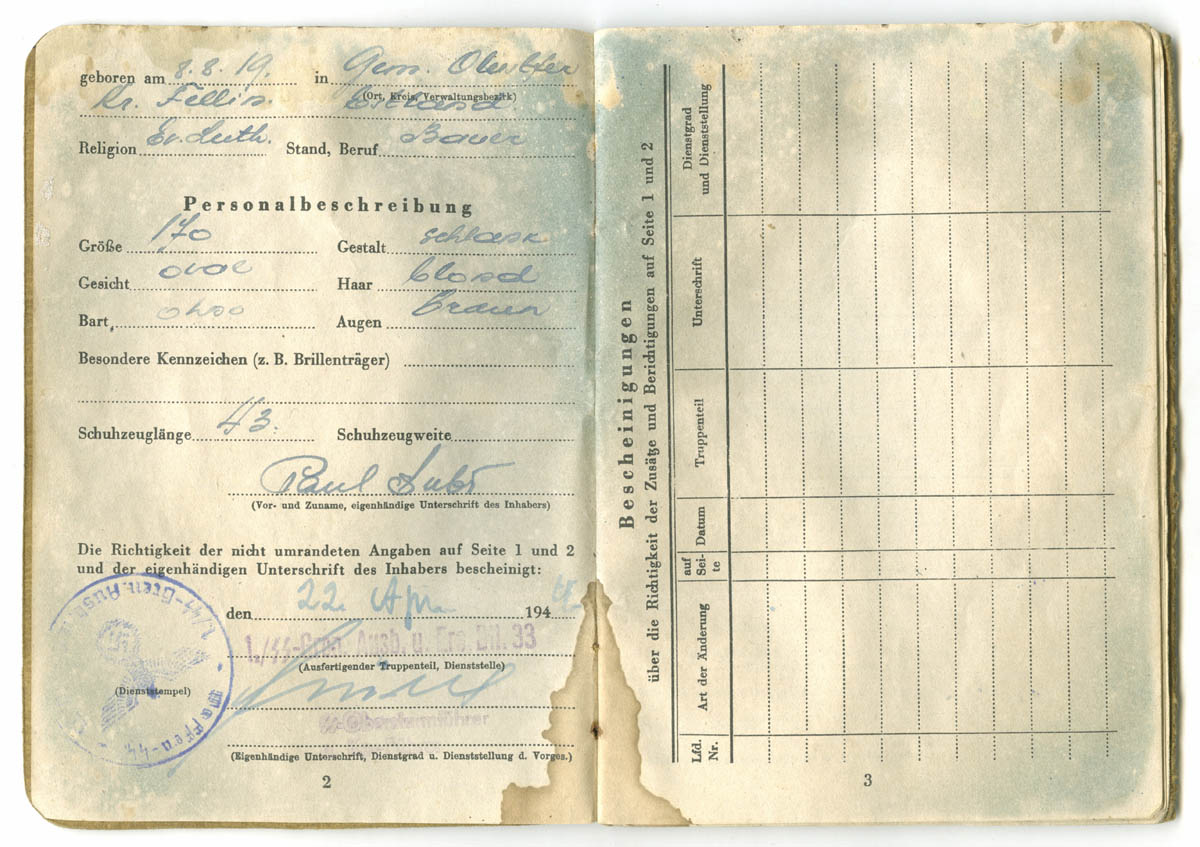 geboren am 8.8.19. in Gem. Olustfer
(Ort, Kreis, Verwaltungsbezirk)
Kr. Fellin. Estland.
Religion Ev. Luth. Stand, Beruf Bauer
Personalbeschreibung
Größe 170 Gestalt schlank
Gesicht oval Haar blond
Bart ohne Augen braun
Besondere Kennzeichen (z. B. Brillenträger)
Schuhzeuglänge 43. Schuhzeugweite
Paul
(Vor- und Zuname, eigenhändige Unterschrift des Inhabers)
Die Richtigkeit der nicht umrandeten Angaben auf Seite 1 und 2
und der eigenhändigen Unterschrift des Inhabers bescheinigt:
den 22. Apr. 194
1./SS-Gren. Ausb. u. Ers. Btl. 33
(Ausfertigender Truppenteil, Dienststelle)
(Dienststempel)
1./SS-Gren. Ausb.
Waffen-SS
SS-Obersturmführer
(Eigenhändige Unterschrift, Dienstgrad u. Dienststellung d. Vorges.)
2
Bescheinigungen
über die Richtigkeit der Zusätze und Berichtigungen auf Seite 1 und 2
Lfd. Nr.
Art der Änderung
auf Sei-te
Datum
Truppenteil
Unterschrift
Dienstgrad und Dienststellung
3